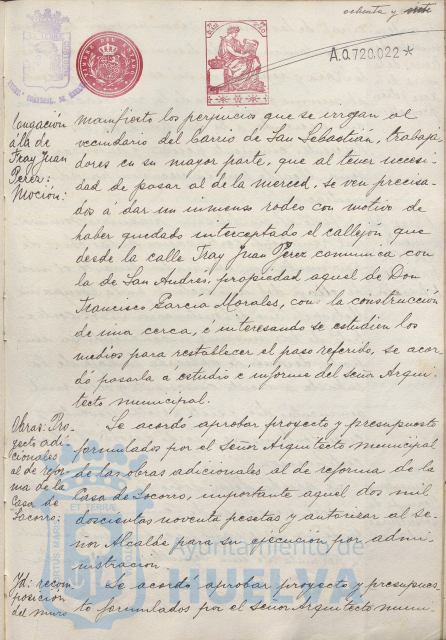 ochenta y
TIMBRE DEL ESTADO
A.0.720.022*
longación
a la de
Fray Juan
Perez:
Moción:
manifiesto los perjuicios que se irrogan al
vecindario del barrio de San Sebastián, trabaja
dores en su mayor parte, que al tener necesi-
dad de pasar al de la merced, se ven precisa-
dos á dar un inmenso rodeo con motivo de
haber quedado interceptado el callejón que
desde la calle Fray Juan Perez comunica con
la de San Andrés, propiedad aquel de Don
Francisco García Morales, con la construcción
de una cerca, é interesando se estudien los
medios para restablecer el paso referido, se acor
dó pasarla á estudio é informe del señor Arqui-
tecto municipal.
Obras: Pro-
yecto adi-
cionales
al de refor
ma de la
Casa de
Socorro:
Se acordó aprobar proyecto y presupuesto
formulados por el Señor Arquitecto municipal
de las obras adicionales al de reforma de la
Casa de Socorro, importante aquel dos mil
doscientas noventa pesetas y autorizar al se-
ñor Alcalde para su ejecución por admi-
nistración.
Id: recom
posición
del muro
Se acordó aprobar proyecto y presupues-
to formulados por el Señor Arquitecto muni-
Ayuntamiento de
HUELVA